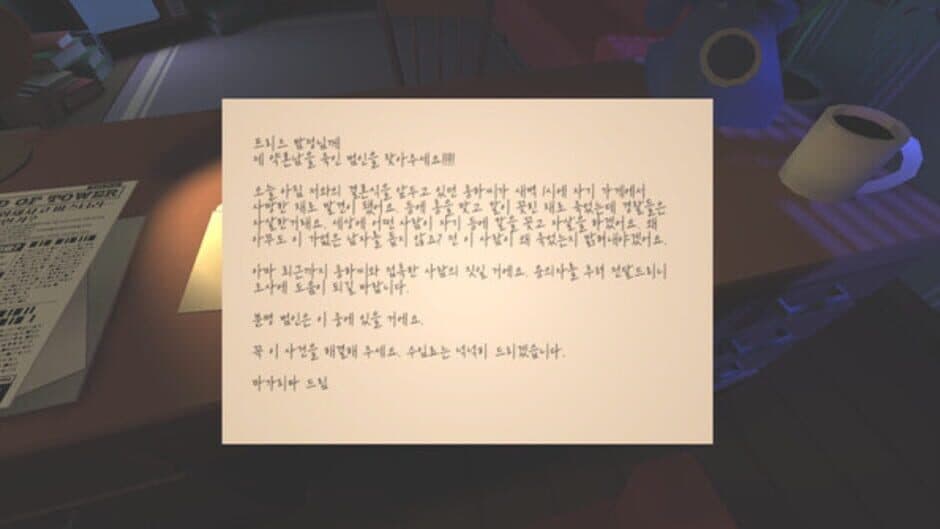 D OF TOWER!
제 약혼남을 죽인 범인을 찾아주세요!!!!!
오늘 아침 저와의 결혼식을 앞두고 있던 동하씨가 새벽 1시에 자기 가게에서
사망한 채로 발견이 됐어요. 등에 총을 맞고 칼이 꽂힌 채로 죽었는데 경찰들은
자살한거래요. 세상에 어떤 사람이 자기 등에 칼을 꽂고 자살을 하겠어요. 왜
아무도 이 가엾은 남자를 돕지 않죠? 전 이 사람이 왜 죽었는지 밝혀내야겠어요.
아마 최근까지 동하씨와 접촉한 사람의 짓일 거예요. 용의자를 추려 전달드리니
조사에 도움이 되길 바랍니다.
분명 범인은 이 중에 있을 거예요.
꼭 이 사건을 해결해 주세요. 수임료는 넉넉히 드리겠습니다.
마가리타 드림